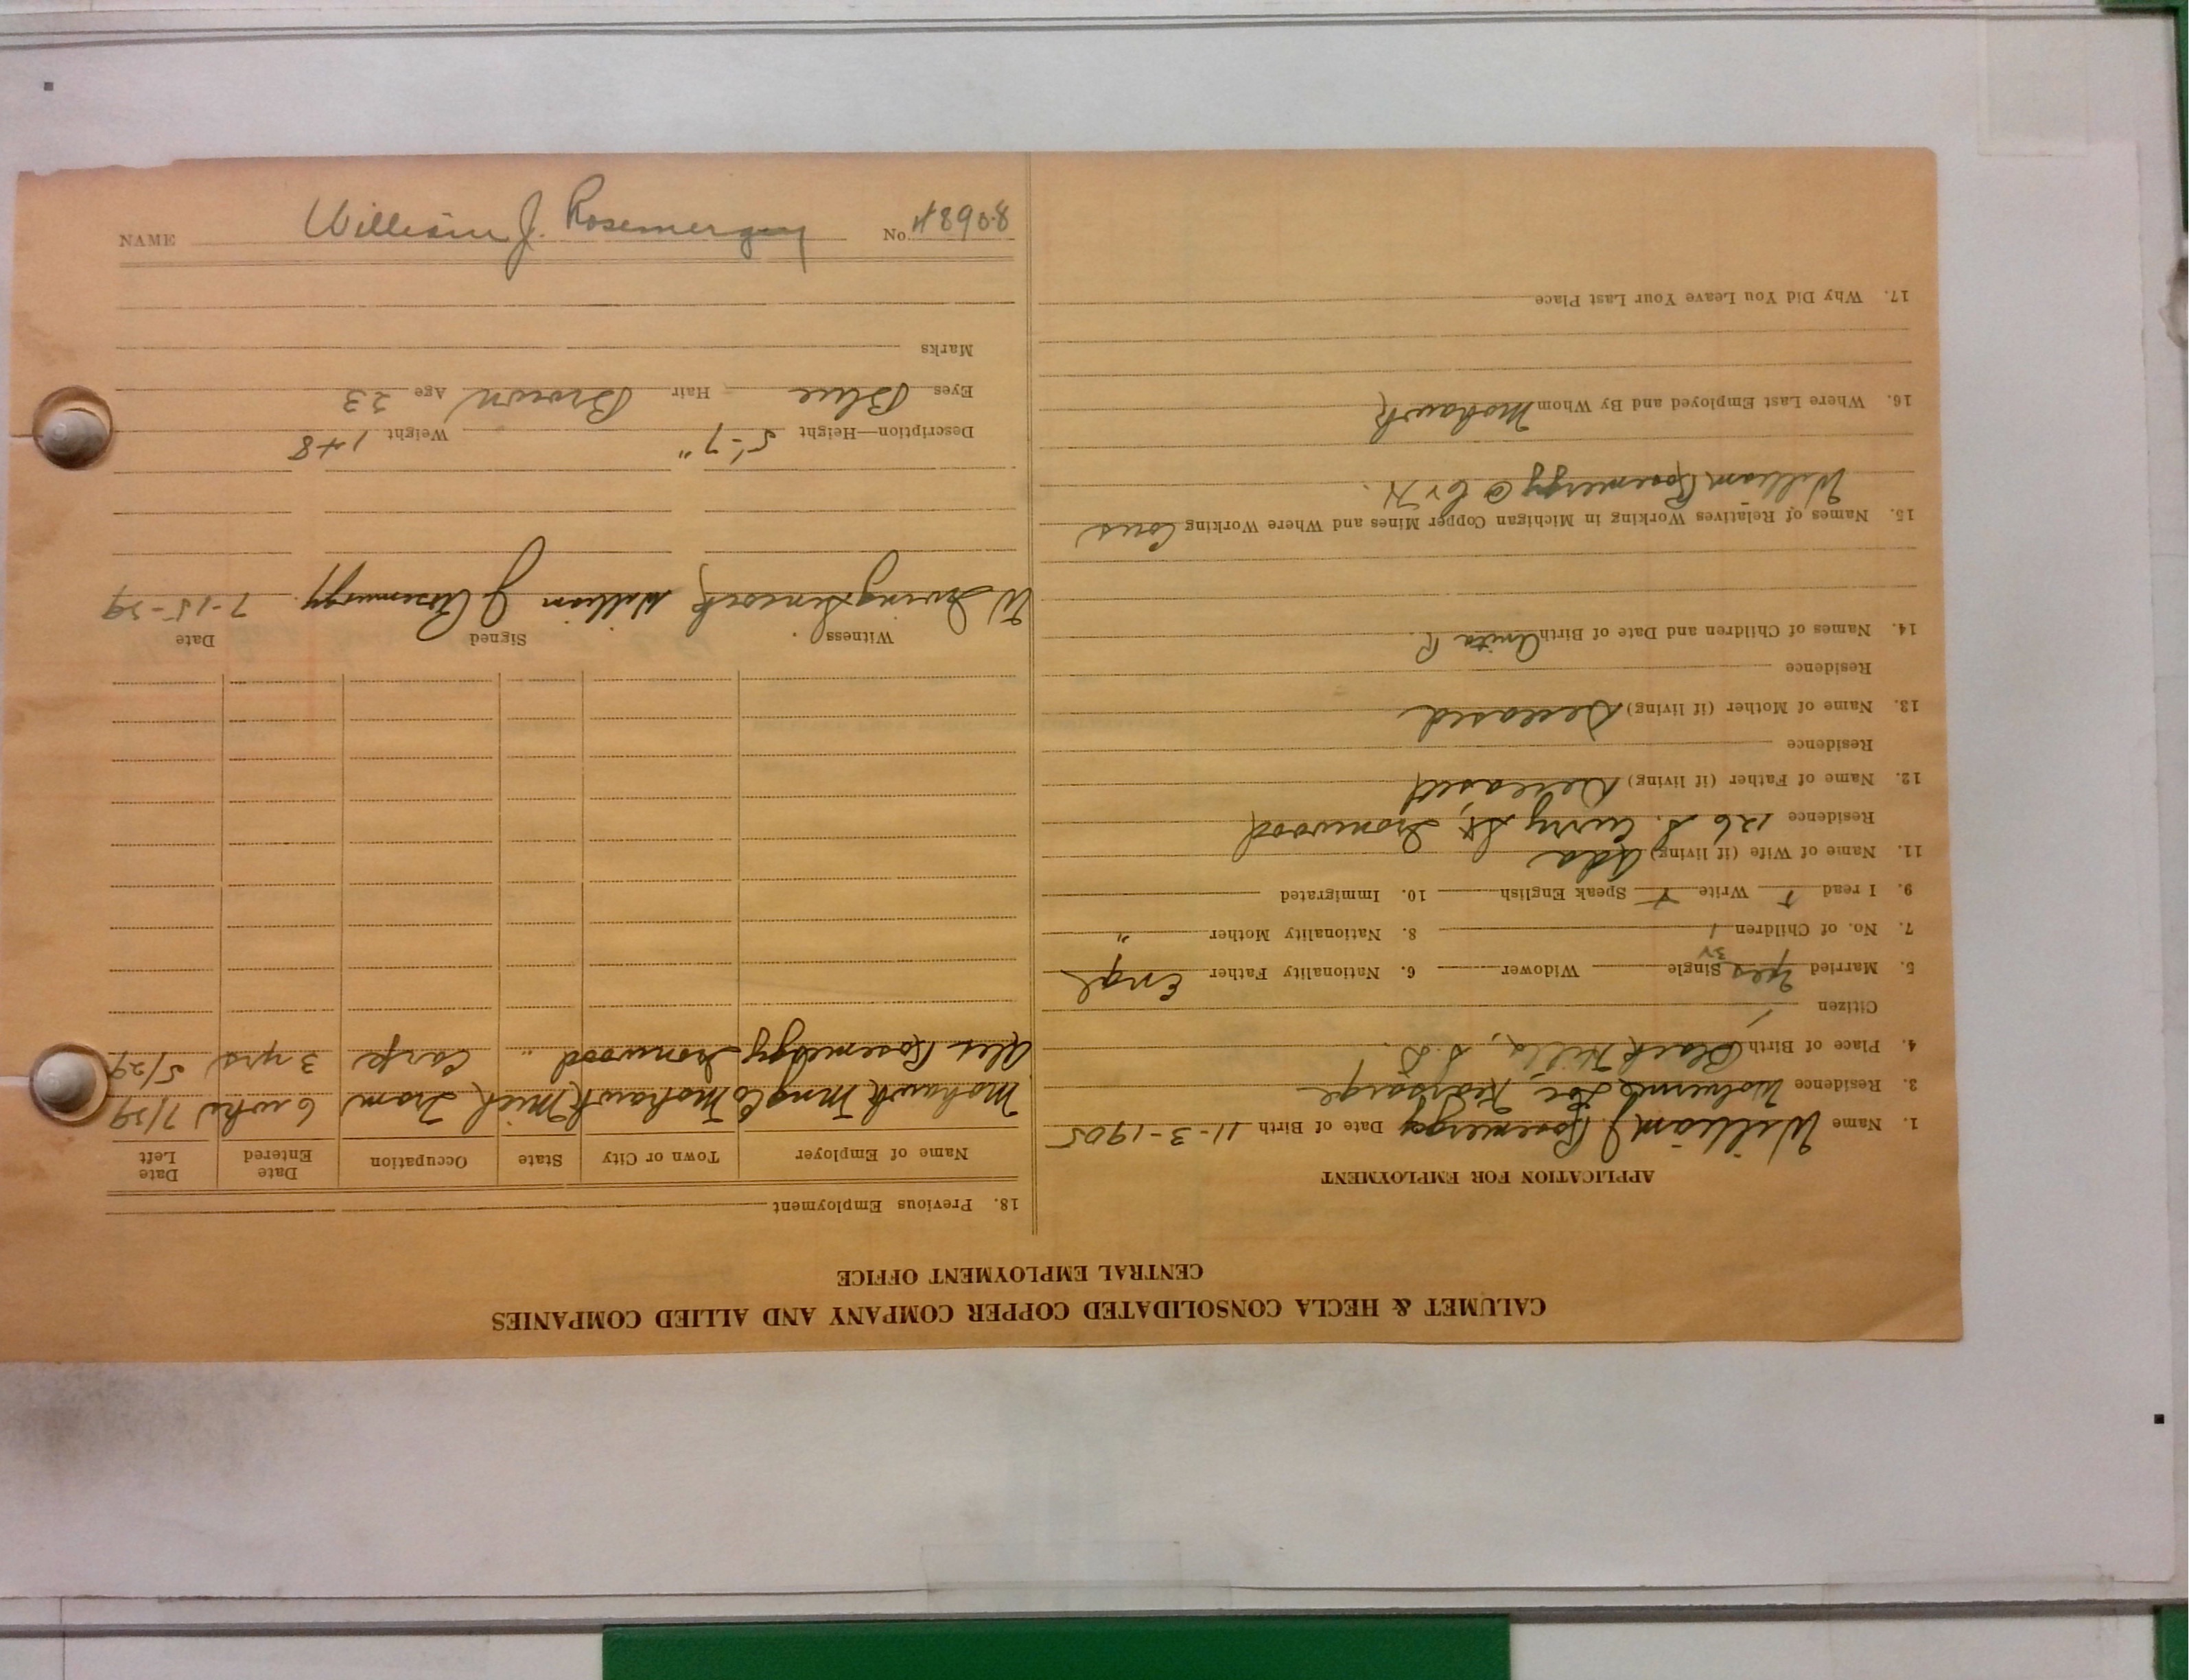 CALUMET & HECLA CONSOLIDATED COPPER COMPANY AND ALLIED COMPANIES
CENTRAL EMPLOYMENT OFFICE
APPLICATION FOR EMPLOYMENT
1. Name William J Rosemergy Date of Birth 11-3-1905
3. Residence Wolverine Loc, Kearsarge
4. Place of Birth Black Hills, S.D.
Citizen
5. Married Yes Single Widower 6. Nationality Father Engl
7. No. of Children 1 8. Nationality Mother "
9. I read Write Speak English 10. Immigrated
11. Name of Wife (if living) Ada
Residence 126 S. Curry St, Ironwood
12. Name of Father (if living) Deceased
Residence
13. Name of Mother (if living) Deceased
Residence
14. Names of Children and Date of Birth Anita R.
15. Names of Relatives Working in Michigan Copper Mines and Where Working Cous
William Rosemergy @ C & H.
16. Where Last Employed and By Whom Mohawk
17. Why Did You Leave Your Last Place
18. Previous Employment
Name of Employer Town or City State Occupation Date Entered Date Left
Mohawk Mng Co Mohawk Mich Tram 6 wks 7/29
Alex Rosemergy Ironwood " Carp 3 yrs 5/29
Witness Signed Date
W Irving William J Rosemergy. 7-15-29
Description—Height 5'-7" Weight 148
Eyes Blue Hair Brown Age 23
Marks
NAME William J. Rosemergy No. 48908